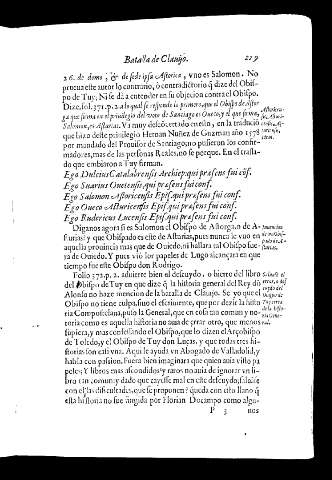 Batalla de Clauijo. 229
26. de domo, & de sede ipsa Astorica, vno es Salomon. No
prueua este autor lo contrario, ò contradictorio q̃ dize del Obis-
po de Tuy, Ni se dà a entender en su objecion contra el Obispo.
Dize, fol. 371. p. 2. a lo qual se responde lo primero, que el Obispo de Astor
ga que firma en el priuilegio del voto de Santiago es Oueco, y el que firma
Salomon, es Asturias. Va muy desatentado en ello, en la traduciõ
que hizo deste priuilegio Hernan Nuñez de Guzman año 1578
por mandado del Prouisor de Santiago, no pusieron los confir-
madores, mas de las personas Reales, no se porque. En el trasla-
do que embiaron a Tuy firman.
Ego Dulcius Catalabrensis Archiep. qui præsens fui cõf.
Ego Suarius Ouetensis, qui præsens fui conf.
Ego Salomon Asturicensis Epis. qui præsens fui conf.
Ego Oueco Asturicensis Epis. qui præsens fui conf.
Ego Rudericus Lucensis Epis. qui præsens fui conf.
Diganos agora si es Salomon el Obispo de Astorga, ò de A-
sturias? y que Obispado es este de Asturias, pues nunca le vuo en
aquella prouincia mas que de Ouiedo, ni hallara tal Obispo fue-
ra de Ouiedo. Y pues viò los papeles de Lugo alcançara en que
tiempo fue este Obispo don Rodrigo.
Folio 372. p. 2. aduierte bien el descuydo, o hierro del libro
del Obispo de Tuy en que dize q̃ la historia general del Rey dõ
Alonso no haze mencion de la batalla de Clauijo. Se yo que el
Obispo no tiene culpa, sino el escriuiente, que por dezir la histo
ria Compostelana, puso la General, que en cosa tan comun y no-
toria como es aquella historia no auia de errar otro, que menos
supiera, y mas confessando el Obispo, que lo dizen el Arçobispo
de Toledo, y el Obispo de Tuy don Lucas, y que todas tres his-
torias son casi vna. Aqui le ayuda vn Abogado de Valladolid, y
habla con passion. Fuera bien imaginara que quien auia visto pa
peles, Y libros mas ascondidos y raros no auia de ignorar vn li-
bro tan comun y dado que cayesse mal en este descuydo, salasse
con el las dificultades, que se proponen? queda con esto llano q̃
esta historia no fue fingida por Florian Docampo como algu-
P 3 nos